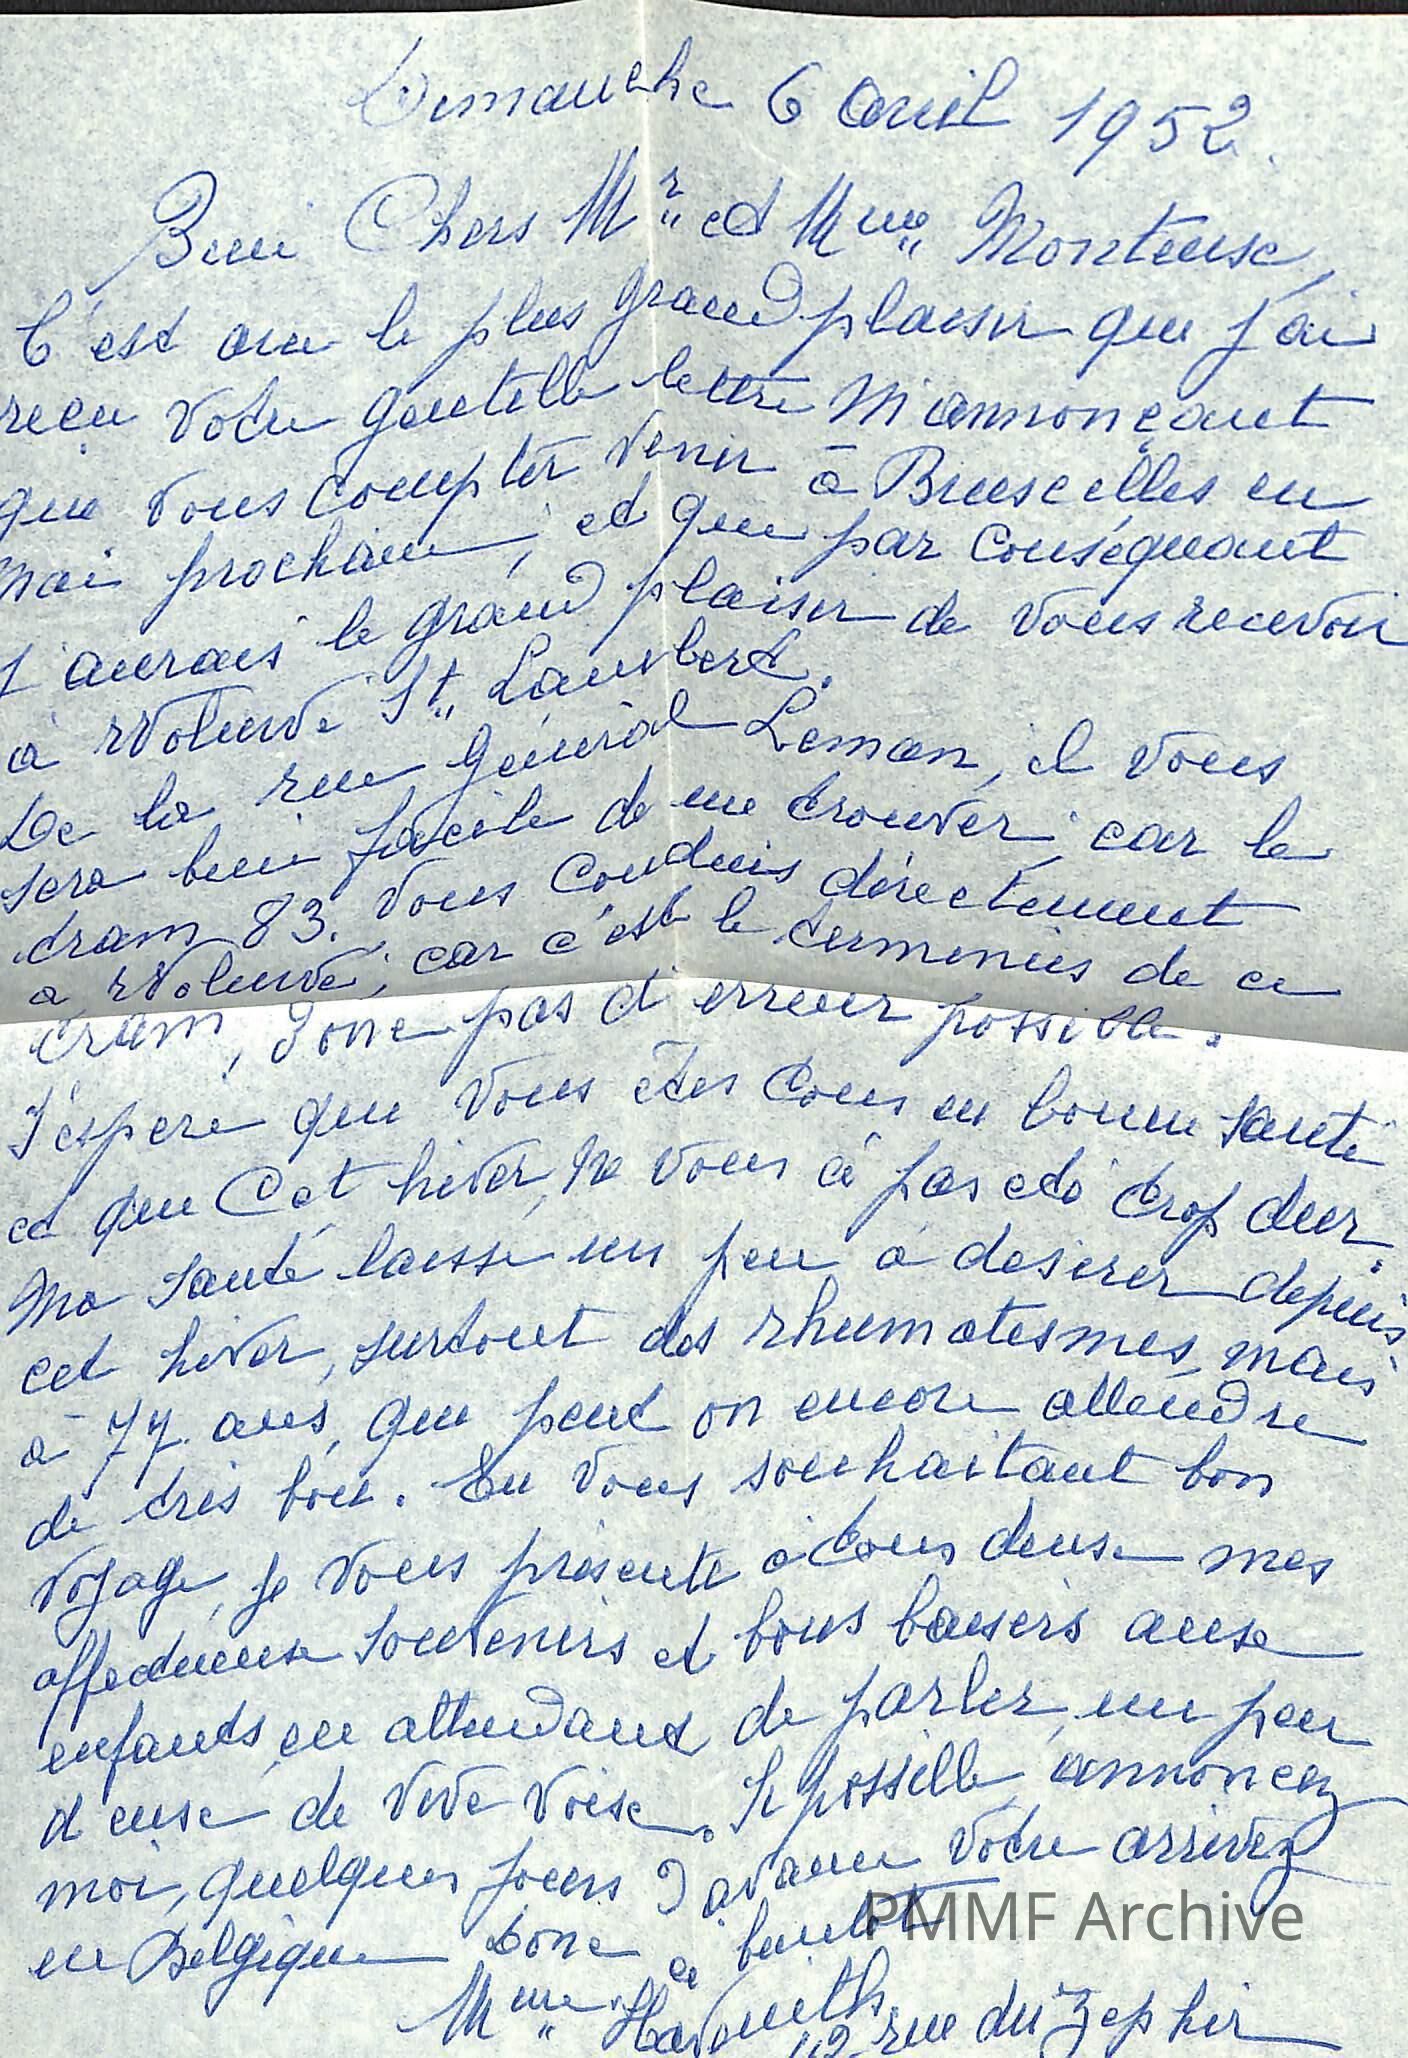 Dimanche 6 Avril 1952.
Bien Chers Mr et Mme Monteux,
C'est avec le plus grand plaisir que j'ai
reçu Votre gentille lettre M'annonçant
que Vous compter Venir à Bruxelles en
Mai prochain, et que par conséquant
j'aurais le grand plaisir de Vous recevoir
à Woluwé St. Lambert.
De la rue Général Leman, il Vous
sera bien facile de me trouver, car le
tram 83. Vous Conduis directement
a Woluwé, car c'est le terminus de ce
tram, donc pas d'erreur possible.
J'espère que Vous êtes tous en bonne santé
et que Cet hiver, ne Vous à pas été trop dur.
Ma santé laisse un peu à desirer depuis
cet hiver, surtout des rhumatismes, mais
à 77 ans, que peut on encore attendre
de très bon. En Vous souhaitant bon
voyage, je Vous présente à tous deux mes
affectueux Souvenirs et bons baisers aux
enfants, en attendant de parler, un peu
d'eux de Vive Voix. Si possible, annoncez
moi, quelques jours d'avance Votre arrivez
en Belgique donc à bientôt
Mme
42 rue du Zephir
PMMF Archive